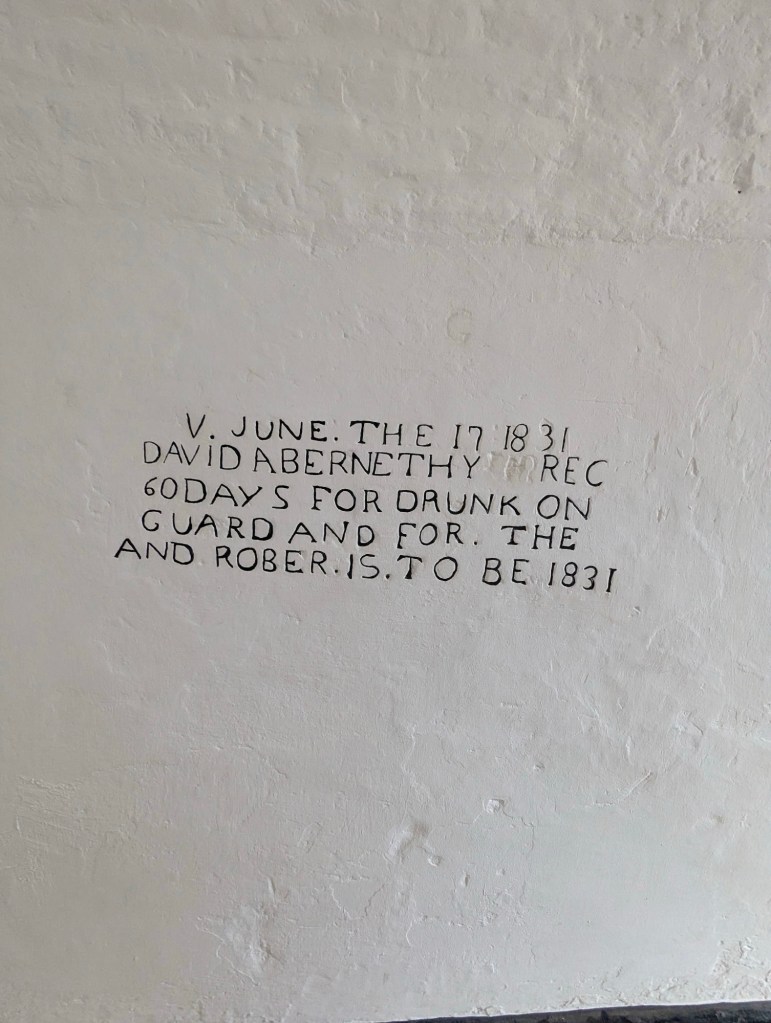 V. JUNE. THE 17 1831
DAVID ABERNETHY REC
60 DAYS FOR DRUNK ON
GUARD AND FOR. THE
AND ROBER. IS. TO BE 1831